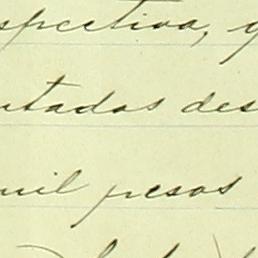 spectiva,
utados des
mil pesos